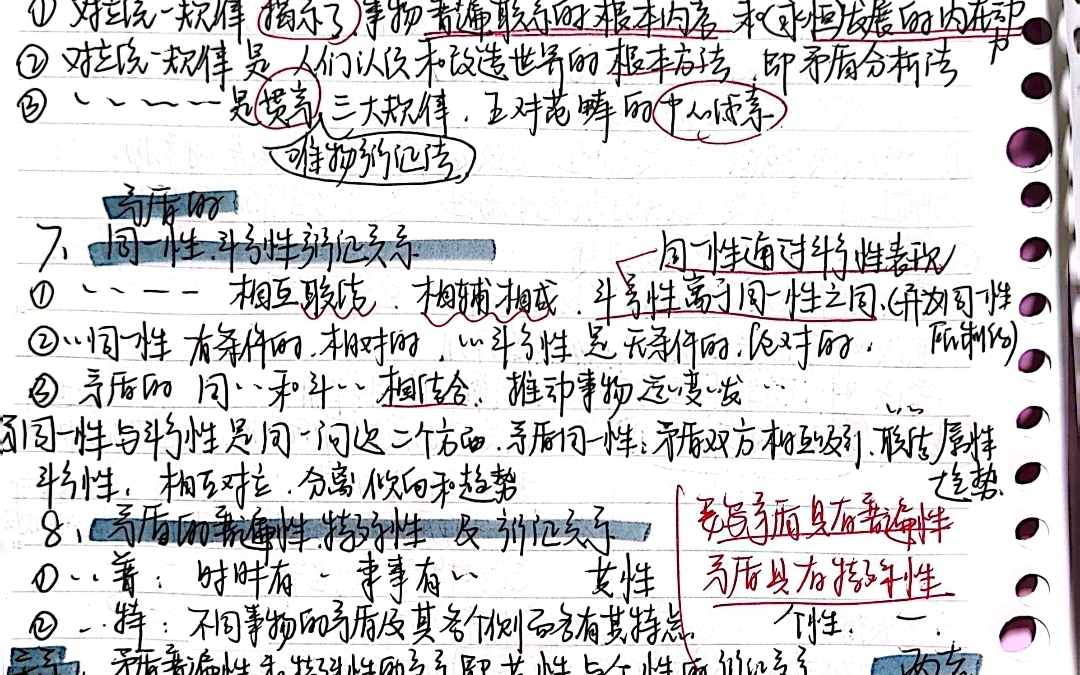 ① 对立统一规律 揭示了 事物 普遍联系的根本内容 和永恒发展的内在动力
② 对立统一规律是 人们认识和改造世界的 根本方法 即矛盾分析法
③ 〃 是贯穿 三大规律、五对范畴的 中心线索
唯物辩证法
矛盾的
7、同一性.斗争性辩证关系
同一性通过斗争性表现
① 〃 相互联结、相辅相成、斗争性寓于同一性之中、(并为同一性所制约)
②〃同一性 有条件的.相对的, 〃斗争性 是无条件的,绝对的.
③ 矛盾的 同〃和斗〃 相结合、推动事物 运〃变〃发〃
同一性与斗争性是同一问题二个方面.矛盾同一性:矛盾双方相互吸引.联结属性 趋势.
斗争性, 相互对立.分离倾向和趋势
8、矛盾的普遍性.特殊性 及 辩证关系
矛盾具有普遍性
矛盾具有特殊性
①〃普: 时时有〃 事事有〃 共性
②〃特: 不同事物的矛盾及其各个侧面各有其特点. 个性.
矛盾普遍性和特殊性的关系即共性与个性的辩证关系